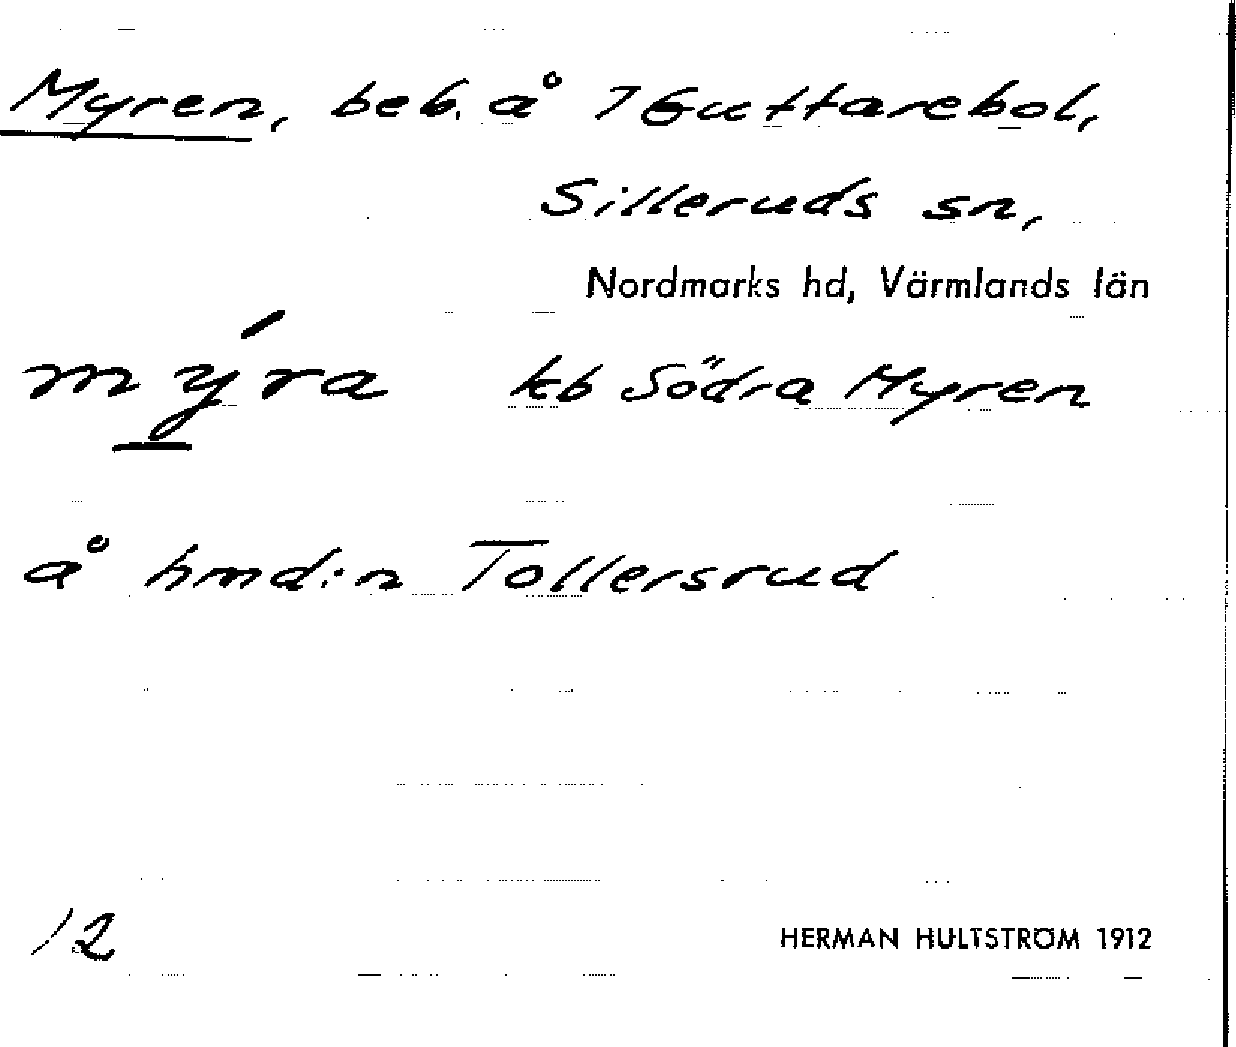 Myren, beb. å 7 Guttarebol,
Silleruds sn,
Nordmarks hd, Värmlands län
mýra kb Södra Myren
å hmd:n Tollersrud
12
HERMAN HULTSTRÖM 1912